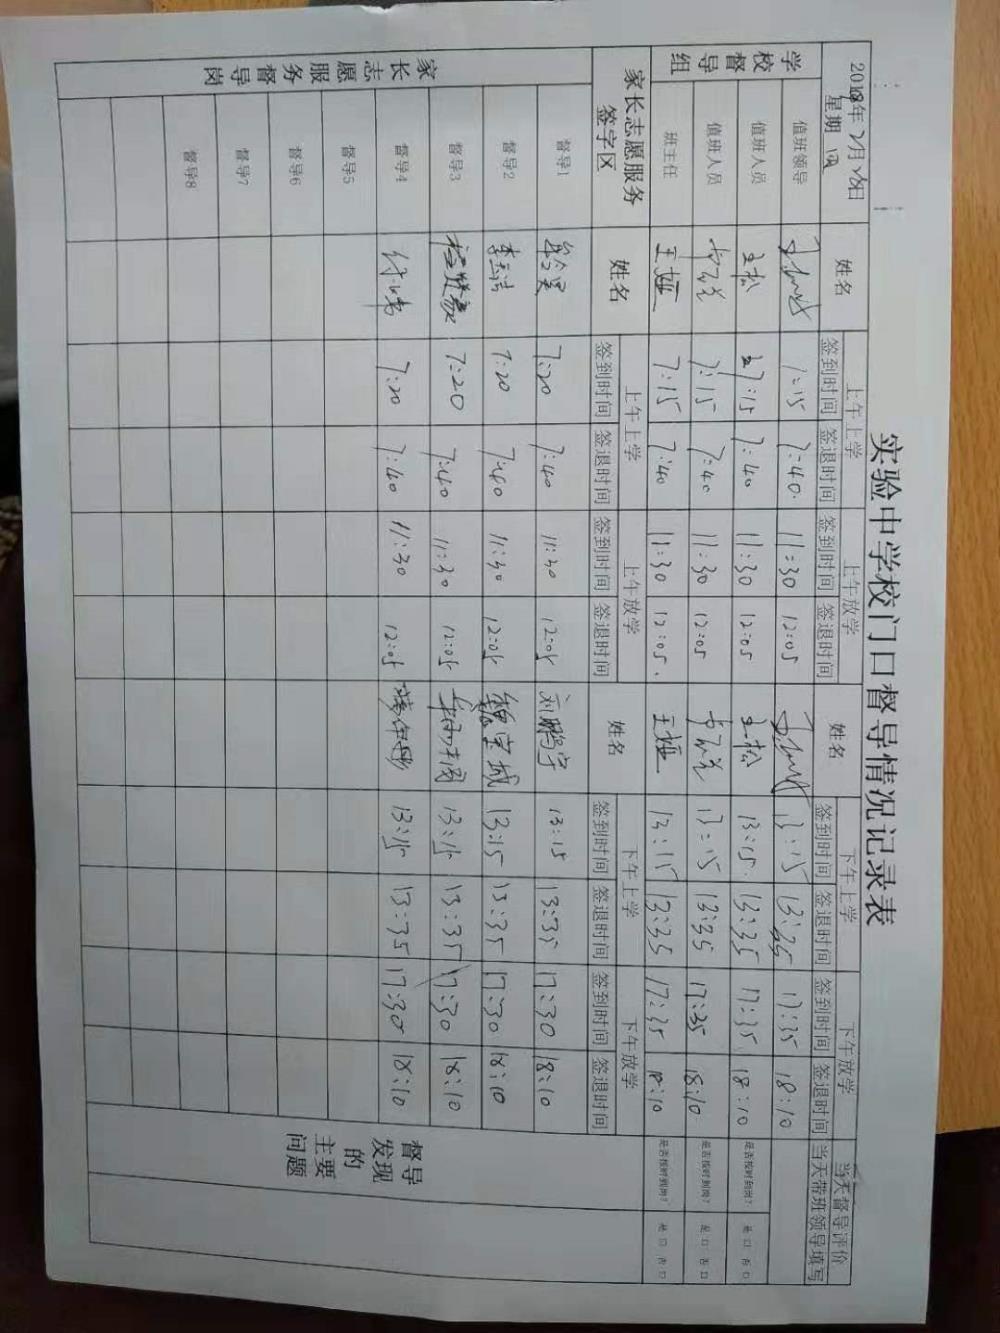 实验中学校门口督导情况记录表
星期四 姓名 上午上学 上午放学 姓名 下午上学 下午放学 当天督导评价
签到时间 签退时间 签到时间 签退时间 签到时间 签退时间 签到时间 签退时间 当天带班领导填写
学校督导组
值班领导 7:15 7:40 11:30 12:05 13:15 13:35 17:35 18:10
值班人员 王松 7:15 7:40 11:30 12:05 王松 13:15 13:35 17:35 18:10 是否按时到岗? 是□ 否□
值班人员 7:15 7:40 11:30 12:05 13:15 13:35 17:35 18:10 是否按时到岗? 是□ 否□
班主任 王娅 7:15 7:40 11:30 12:05 王娅 13:15 13:35 17:35 18:10 是否按时到岗? 是□ 否□
家长志愿服务签字区 姓名 上午上学 上午放学 姓名 下午上学 下午放学
签到时间 签退时间 签到时间 签退时间 签到时间 签退时间 签到时间 签退时间
家长志愿服务督导岗
督导1 7:20 7:40 11:30 12:05 刘鹏宇 13:15 13:35 17:30 18:10
督导2 7:20 7:40 11:30 12:05 魏宝城 13:15 13:35 17:30 18:10
督导3 7:20 7:40 11:30 12:05 13:15 13:35 17:30 18:10
督导4 7:20 7:40 11:30 12:05 13:15 13:35 17:30 18:10
督导5
督导6
督导7
督导8
督导发现的主要问题